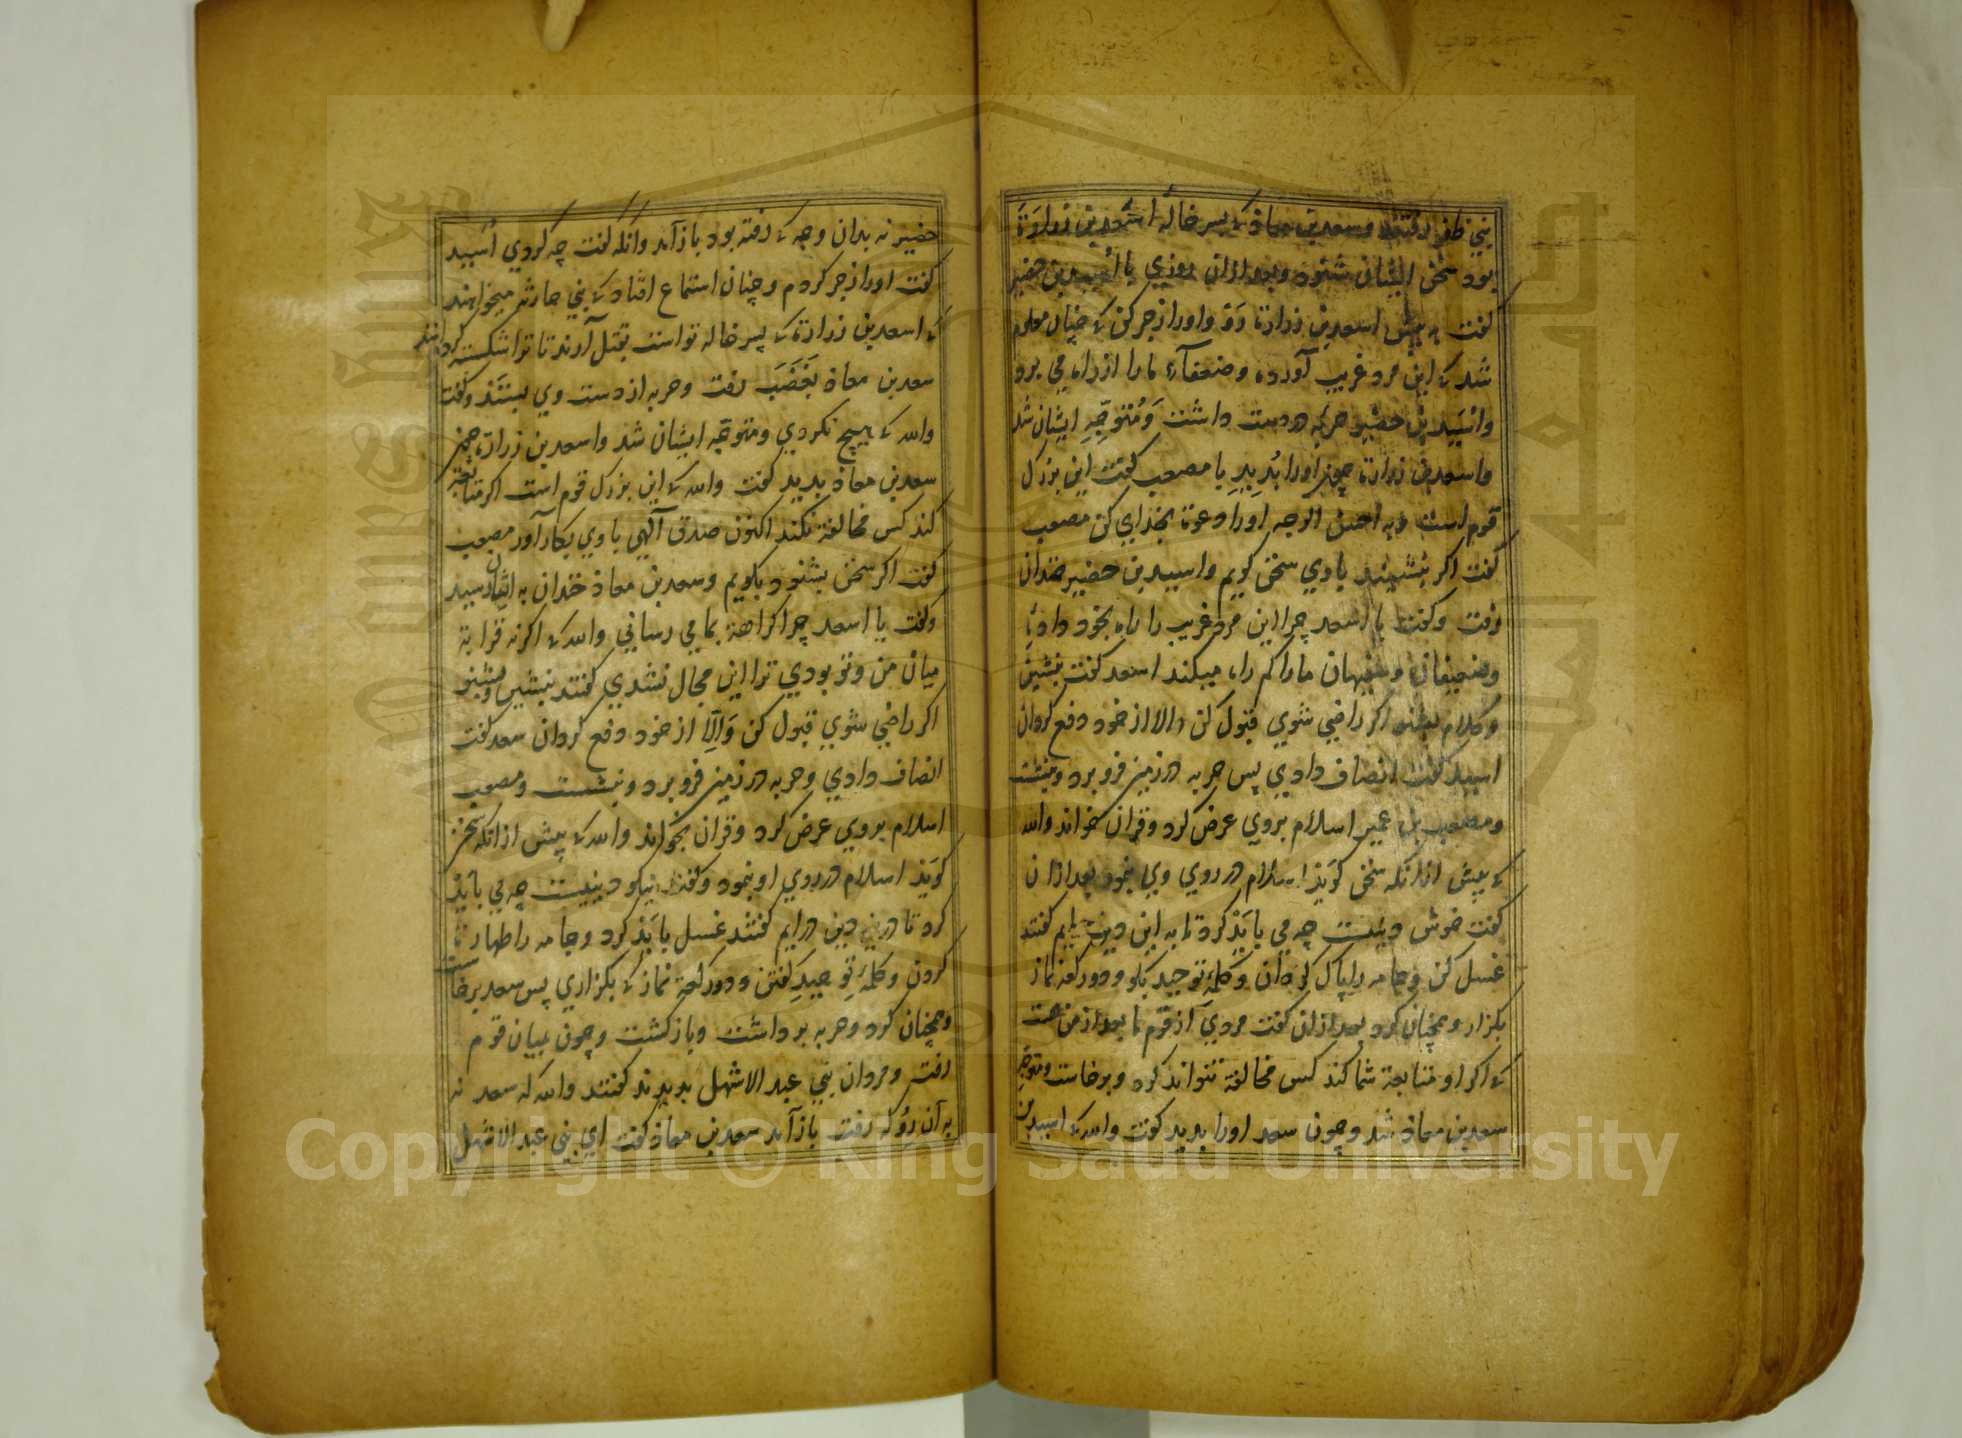 بني ظفر رفتند وسعد بن معاذ كه پسر خاله اسعد بن زرارة
بود سخن ايشان شنود وبعد ازان روزي با اسيد بن حضير
گفت به پيش اسعد بن زرارة رو واورا زجر كن كه چنان معلوم
شد كه اين مرد غريب آورده وضعفآء مارا از راه مي برد
واسيد بن حضير حربه در دست داشت ومتوجه ايشان شد
واسعد بن زرارة چون اورا بديد با مصعب گفت اين بزرك
قوم است به احسن الوجه اورا دعوة بخداي كن مصعب
گفت اكر بنشيند با وي سخن كويم واسيد بن حضير خندان
رفت وگفت يا اسعد چرا اين مرد غريب را راه بخود دادۀ
وضعيفان وسفيهان مارا كم راه ميكند اسعد گفت بنشين
وكلام بشنو اكر راضي شوي قبول كن والا از خود دفع كردان
اسيد گفت انصاف دادي پس حربه در زمين فرو برد وبنشست
ومصعب بن عمير اسلام بروي عرض كرد وقران خواند والله
كه پيش ازانكه سخن كويد اسلام در روي وي نمود بعد ازان
گفت خوش دينيست چه مي بايد كرد تا به اين دين درايم گفتند
غسل كن وجامه را پاك كردان وكلمۀ توحيد بگو ودو ركعة نماز
بكزار وهمچنان كرد بعد ازان گفت مردي از قوم ما بعد از من هست
كه اكر او متابعة شما كند كس مخالفة نتواند كرد وبرخاست ومتوجه
سعد بن معاذ شد وچون سعد اورا بديد گفت والله كه اسيد بن
حضير نه بدان وجه كه رفته بود باز آمد وانگه گفت چه كردي اسيد
گفت اورا زجر كردم وچنان استماع افتاد كه بني حارثه ميخواهند
كه اسعد بن زرارة كه پسر خاله تواست بقتل آرند تا ترا شكسته كردانند
سعد بن معاذ بغضب رفت وحربه از دست وي بستند وگفت
والله كه هيچ نكردي ومتوجه ايشان شد واسعد بن زرارة چون
سعد بن معاذ بديد گفت والله كه اين بزرك قوم است اكر متابعة
كند كس مخالفة نكند اكنون صدق آلهي با وي بكار آور مصعب
گفت اكر سخن بشنود بكويم وسعد بن معاذ خندان به ايشان رسيد
وگفت يا اسعد چرا كراهة بما مي رساني والله كه اكر نه قرابة
ميان من وتو بودي ترا اين مجال نشدي گفتند بنشين وبشنو
اكر راضي شوي قبول كن وإلا از خود دفع كردان سعد گفت
انصاف دادي وحربه در زمين فرو برد وبنشست ومصعب
اسلام بروي عرض كرد وقران بخواند والله كه پيش ازانكه سخن
كويد اسلام در روي او نمود وگفت نيكو دينيست چه مي بايد
كرد تا درين دين درايم گفتند غسل بايد كرد وجامه را طهارت
كردن وكلمۀ توحيد گفتن ودو ركعة نماز كه بكزاري پس سعد برخاست
وهمچنان كرد وحربه برداشت وباز كشت وچون بميان قوم
رفت ومردان بني عبد الاشهل بديدند گفتند والله كه سعد نه
به آن رو كه رفت باز آمد سعد بن معاذ گفت اي بني عبد الاشهل
Copyright © King Saud University